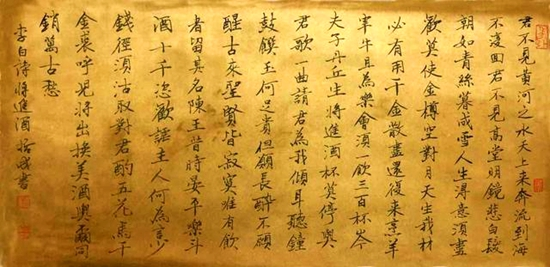 君不見黄河之水天上来奔流到海
不復回君不見高堂明鏡悲白髮
朝如青絲暮成雪人生得意須盡
歡莫使金樽空對月天生我材
必有用千金散盡還復来烹羊
宰牛且為樂會須一飲三百杯岑
夫子丹丘生將進酒杯莫停與
君歌一曲請君為我傾耳聽鐘
鼓饌玉何足貴但願長醉不願
醒古来聖賢皆寂寞唯有飲
者留其名陳王昔時宴平樂斗
酒十千恣歡謔主人何為言少
錢徑須沽取對君酌五花馬千
金裘呼兒將出換美酒與爾同
銷萬古愁
李白詩將進酒 書